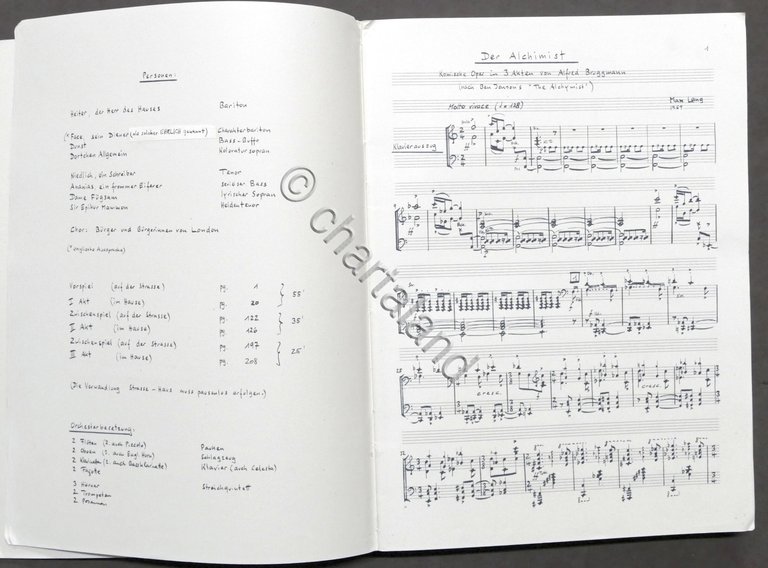 Personen:
Heiter, der Herr des Hauses Bariton
(* Face, sein Diener (als solcher EHRLICH genannt) Charakterbariton
Dunst Bass-Buffo
Dortchen Allgemein Koloratursopran
Niedlich, ein Schreiber Tenor
Ananias, ein frommer Eiferer seriöser Bass
Dame Fügsam lyrischer Sopran
Sir Epikur Mammon Heldentenor
Chor: Bürger und Bürgerinnen von London
(* englische Aussprache)
Vorspiel (auf der Strasse) pg. 1
I Akt (im Hause) pg. 20 } 55'
Zwischenspiel (auf der Strasse) pg. 122
II Akt (im Hause) pg. 126 } 35'
Zwischenspiel (auf der Strasse) pg. 197
III Akt (im Hause) pg. 208 } 25'
(Die Verwandlung Strasse - Haus muss pausenlos erfolgen.)
Orchesterbesetzung:
2 Flöten (2. auch Piccolo) Pauken
2 Oboen (2. auch Engl. Horn) Schlagzeug
2 Klarinetten (2. auch Bassklarinette) Klavier (auch Celesta)
2 Fagotte
3 Hörner Streichquintett
2 Trompeten
2 Posaunen
1
Der Alchimist
Komische Oper in 3 Akten von Alfred Bruggmann
(nach Ben Jonson's "The Alchymist")
Max Lang
Molto vivace
Klavierauszug
1
cresc.
cresc.
© chartaland